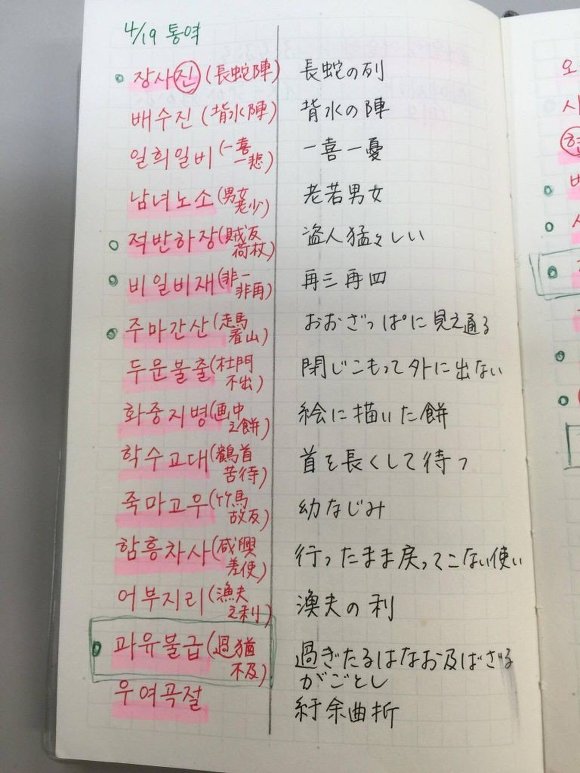 4/19 통역
장사진(長蛇陣) 長蛇の列
배수진(背水陣) 背水の陣
일희일비(一喜一悲) 一喜一憂
남녀노소(男女老少) 老若男女
적반하장(賊反荷杖) 盗人猛々しい
비일비재(非一非再) 再三再四
주마간산(走馬看山) おおざっぱに見て通る
두문불출(杜門不出) 閉じこもって外に出ない
화중지병(画中之餅) 絵に描いた餅
학수고대(鶴首苦待) 首を長くして待つ
죽마고우(竹馬故友) 幼なじみ
함흥차사(咸興差使) 行ったまま戻ってこない使い
어부지리(漁夫之利) 漁夫の利
과유불급(過猶不及) 過ぎたるはなお及ばざる
がごとし
우여곡절 紆余曲折